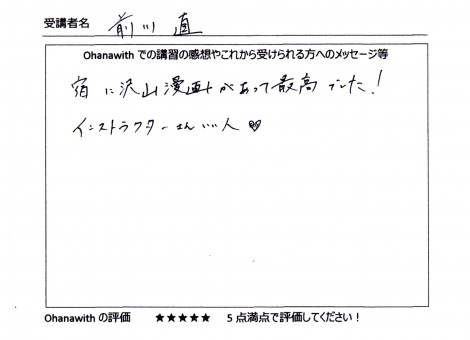 受講者名 前川 直
Ohanawith での講習の感想やこれから受けられる方へのメッセージ等
宿に沢山漫画があって最高でした!
インストラクターさんいい人♥
Ohanawith の評価 ★★★★★ 5 点満点で評価してください!